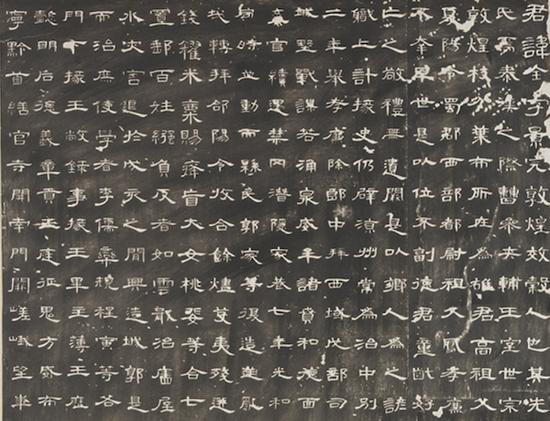 君諱全字景完敦煌效穀人也其先
氏焉秦漢之際曹參夾輔王室世宗
敦煌枝分葉布所在為雄君高祖父
夏陽令蜀郡西部都尉祖父鳳孝廉
不幸早世是以位不副德君童齔好
止之敬禮無遺闕是以鄉人為之諺
職上計掾史仍辟涼州常為治中別
二年舉孝廉除郎中拜西域戊部司
城野戰謀若涌泉威牟諸賁和德面
棄官續遇禁罔潛隱家巷七年光和
同時並動而縣民郭家等復造逆亂
戎轉拜郃陽令收合餘燼芟夷殘迸
錢糴米粟賜癃盲大女桃婓等合七
置郵百姓繈負反者如雲戢治廧屋
水灾害退於戊亥之間興造城郭是
而治庶使學者李儒欒規程寅等各
門下掾王敞錄事掾王畢主簿王歷
懿明后德義章貢王庭征鬼方威布
寧黔首繕官寺開南門闕嵯峨望華